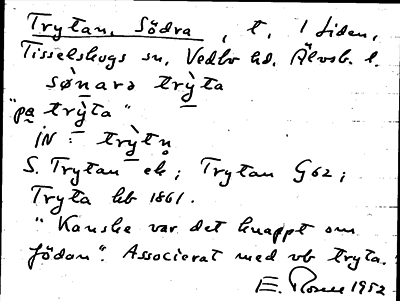 Trytan, Södra, t. 1 Liden,
Tisselskogs sn, Vedbo hd. Älvsb. l.
sø̀nara trỳta
"pa trỳta"
iN: trỳtn̥
S. Trytan ek; Trytan G62;
Tryta hb 1861.
"Kanske var det knappt om
födan". Associerat med vb tryta.
E. 1952